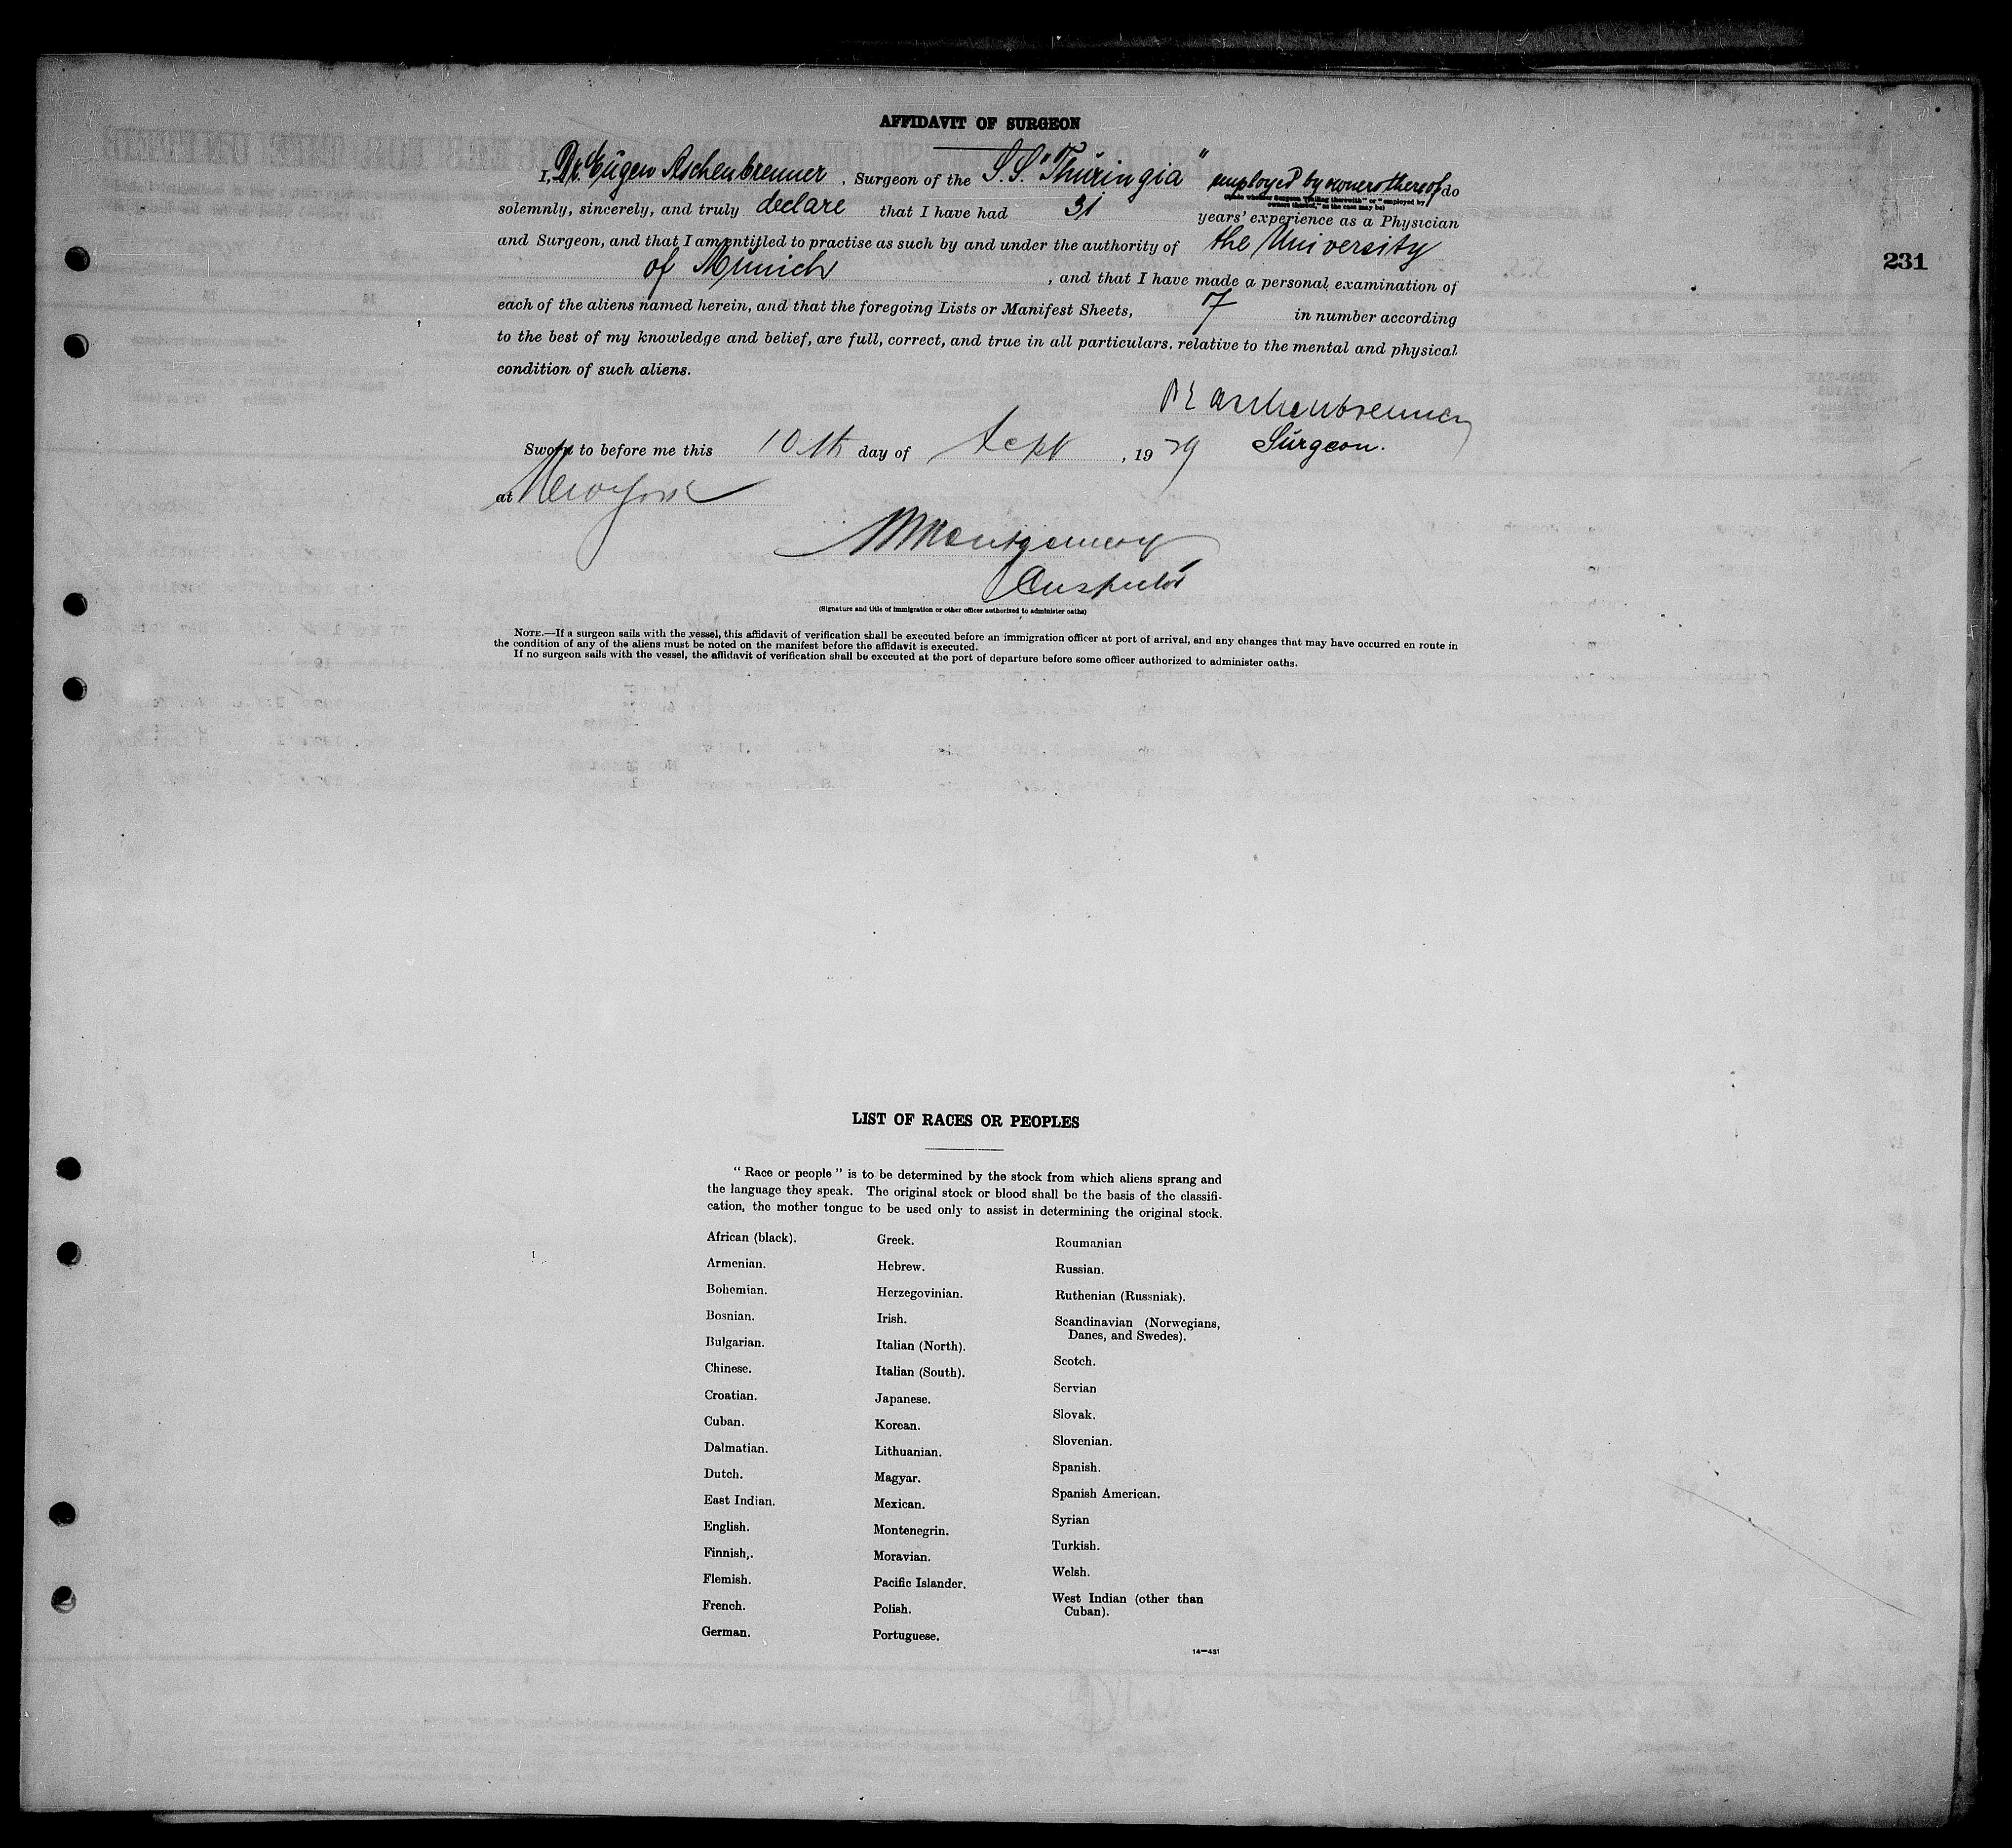 AFFIDAVIT OF SURGEON
I, Dr. Eugen Aschenbrenner, Surgeon of the S.S. "Thüringia" employed by owners thereof do
(State whether Surgeon "sailing therewith" or "employed by
owners thereof," as the case may be)
solemnly, sincerely, and truly declare that I have had 31 years' experience as a Physician
and Surgeon, and that I am entitled to practise as such by and under the authority of the University
of Munich, and that I have made a personal examination of
231
each of the aliens named herein, and that the foregoing Lists or Manifest Sheets, 7 in number according
to the best of my knowledge and belief, are full, correct, and true in all particulars, relative to the mental and physical
condition of such aliens.
Dr E Aschenbrenner
Sworn to before me this 10th day of Sept, 1929 Surgeon.
at New York
Montgomery
Inspector
(Signature and title of immigration or other officer authorized to administer oaths)
NOTE.—If a surgeon sails with the vessel, this affidavit of verification shall be executed before an immigration officer at port of arrival, and any changes that may have occurred en route in
the condition of any of the aliens must be noted on the manifest before the affidavit is executed.
If no surgeon sails with the vessel, the affidavit of verification shall be executed at the port of departure before some officer authorized to administer oaths.
LIST OF RACES OR PEOPLES
"Race or people" is to be determined by the stock from which aliens sprang and
the language they speak. The original stock or blood shall be the basis of the classifi-
cation, the mother tongue to be used only to assist in determining the original stock.
African (black).
Armenian.
Bohemian.
Bosnian.
Bulgarian.
Chinese.
Croatian.
Cuban.
Dalmatian.
Dutch.
East Indian.
English.
Finnish,.
Flemish.
French.
German.
Greek.
Hebrew.
Herzegovinian.
Irish.
Italian (North).
Italian (South).
Japanese.
Korean.
Lithuanian.
Magyar.
Mexican.
Montenegrin.
Moravian.
Pacific Islander.
Polish.
Portuguese.
Roumanian
Russian.
Ruthenian (Russniak).
Scandinavian (Norwegians,
Danes, and Swedes).
Scotch.
Servian
Slovak.
Slovenian.
Spanish.
Spanish American.
Syrian
Turkish.
Welsh.
West Indian (other than
Cuban).
14—431